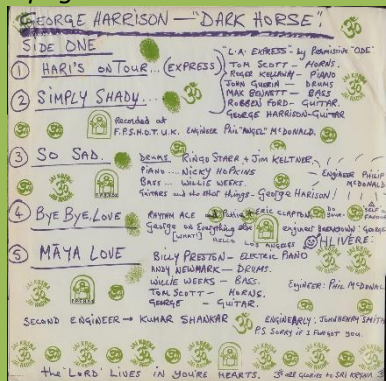 GEORGE HARRISON — "DARK HORSE".
SIDE ONE
① HARI'S ON TOUR... (EXPRESS)
L.A. EXPRESS - by Permissive "ODE"
TOM SCOTT - HORNS.
ROGER KELLAWAY - PIANO
JOHN GUERIN - DRUMS
MAX BENNETT - BASS
ROBBEN FORD - GUITAR.
GEORGE HARRISON - GUITAR
② SIMPLY SHADY...
Recorded at
F.P.S.H.O.T. U.K. ENGINEER Phil "ANGEL" McDONALD.
③ SO SAD.
DRUMS. RINGO STARR + JIM KELTNER.
PIANO.... NICKY HOPKINS
BASS... WILLIE WEEKS.
GUITARS and the other things - GEORGE HARISON!
ENGINEER PHILIP
McDONALD
④ BYE BYE, LOVE
RHYTHM ACE ERIC CLAPTON
George on Everything else
[WHAT!]
HELLO LOS ANGELES
OHLIVERE:
⑤ MĀYA LOVE
BILLY PRESTON - ELECTRIC PIANO
ANDY NEWMARK - DRUMS.
WILLIE WEEKS - BASS.
TOM SCOTT - HORNS.
GEORGE - GUITAR.
ENGINEER: PHIL McDONALD
SECOND ENGINEER → KUMAR SHANKAR
ENGINEARLY: JOHN HENRY SMITH
P.S. SORRY IF I FORGOT YOU.
the 'LORD' LIVES IN YOU'RE HEARTS. ALL GLORIES to SRI KRSNA